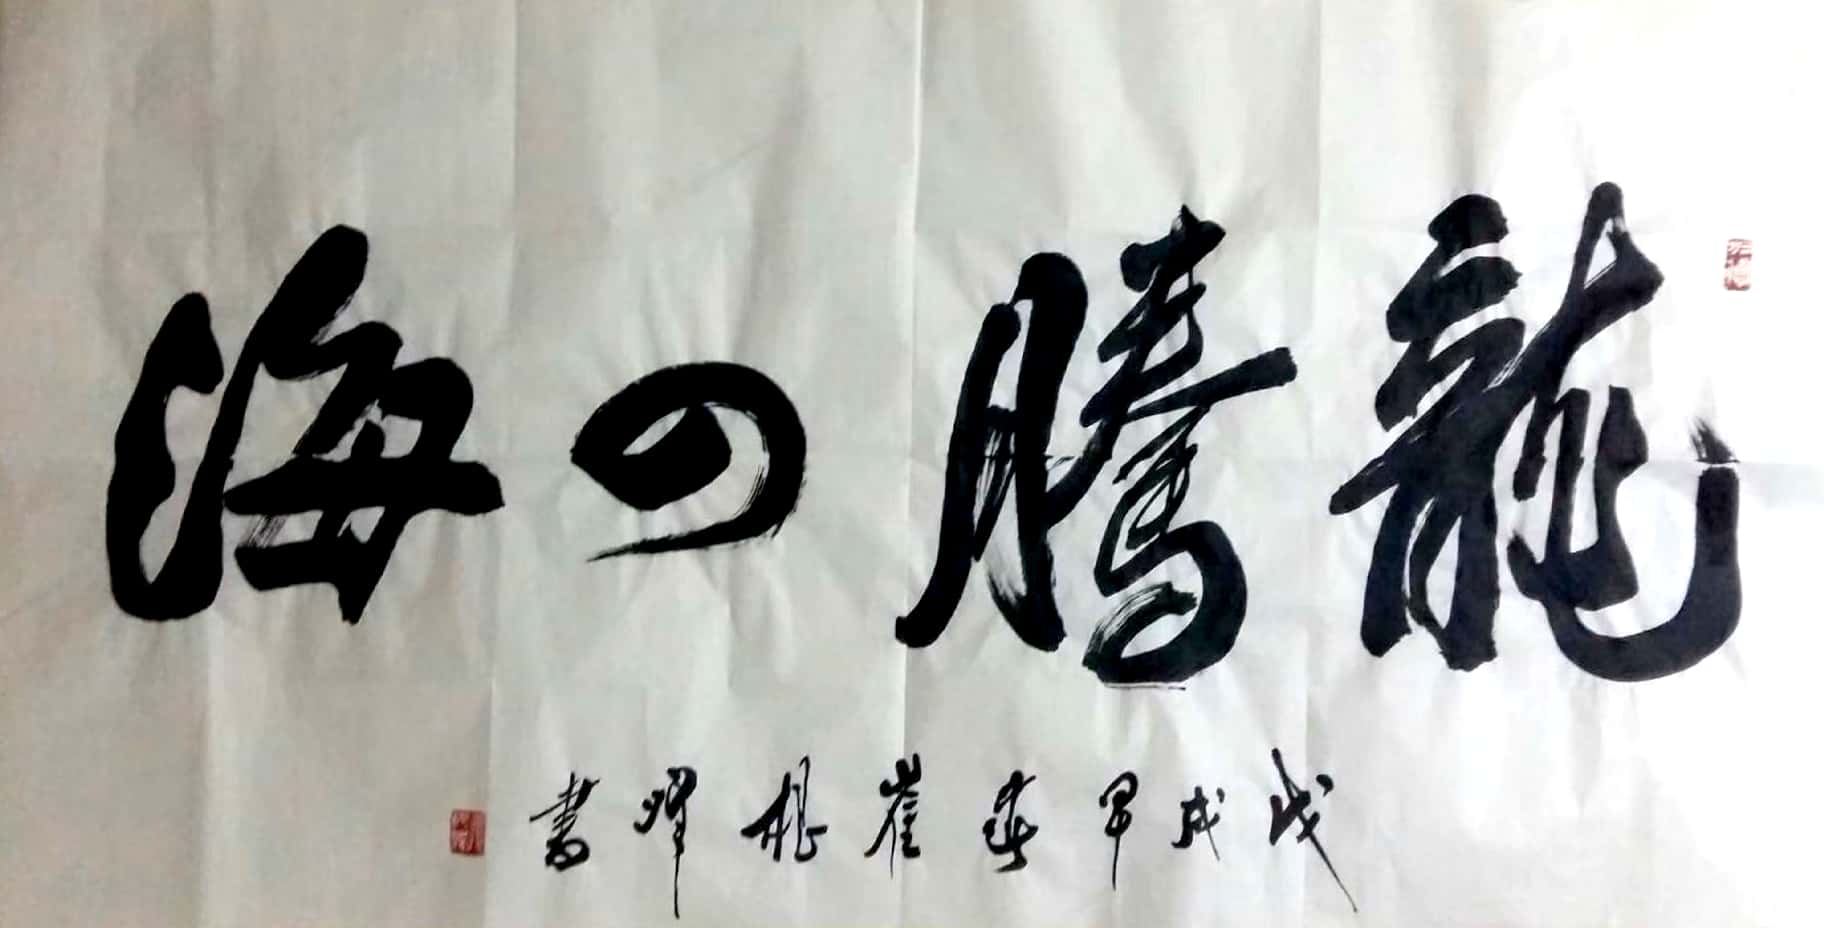 龍騰四海
戊戌早春崔根耀書